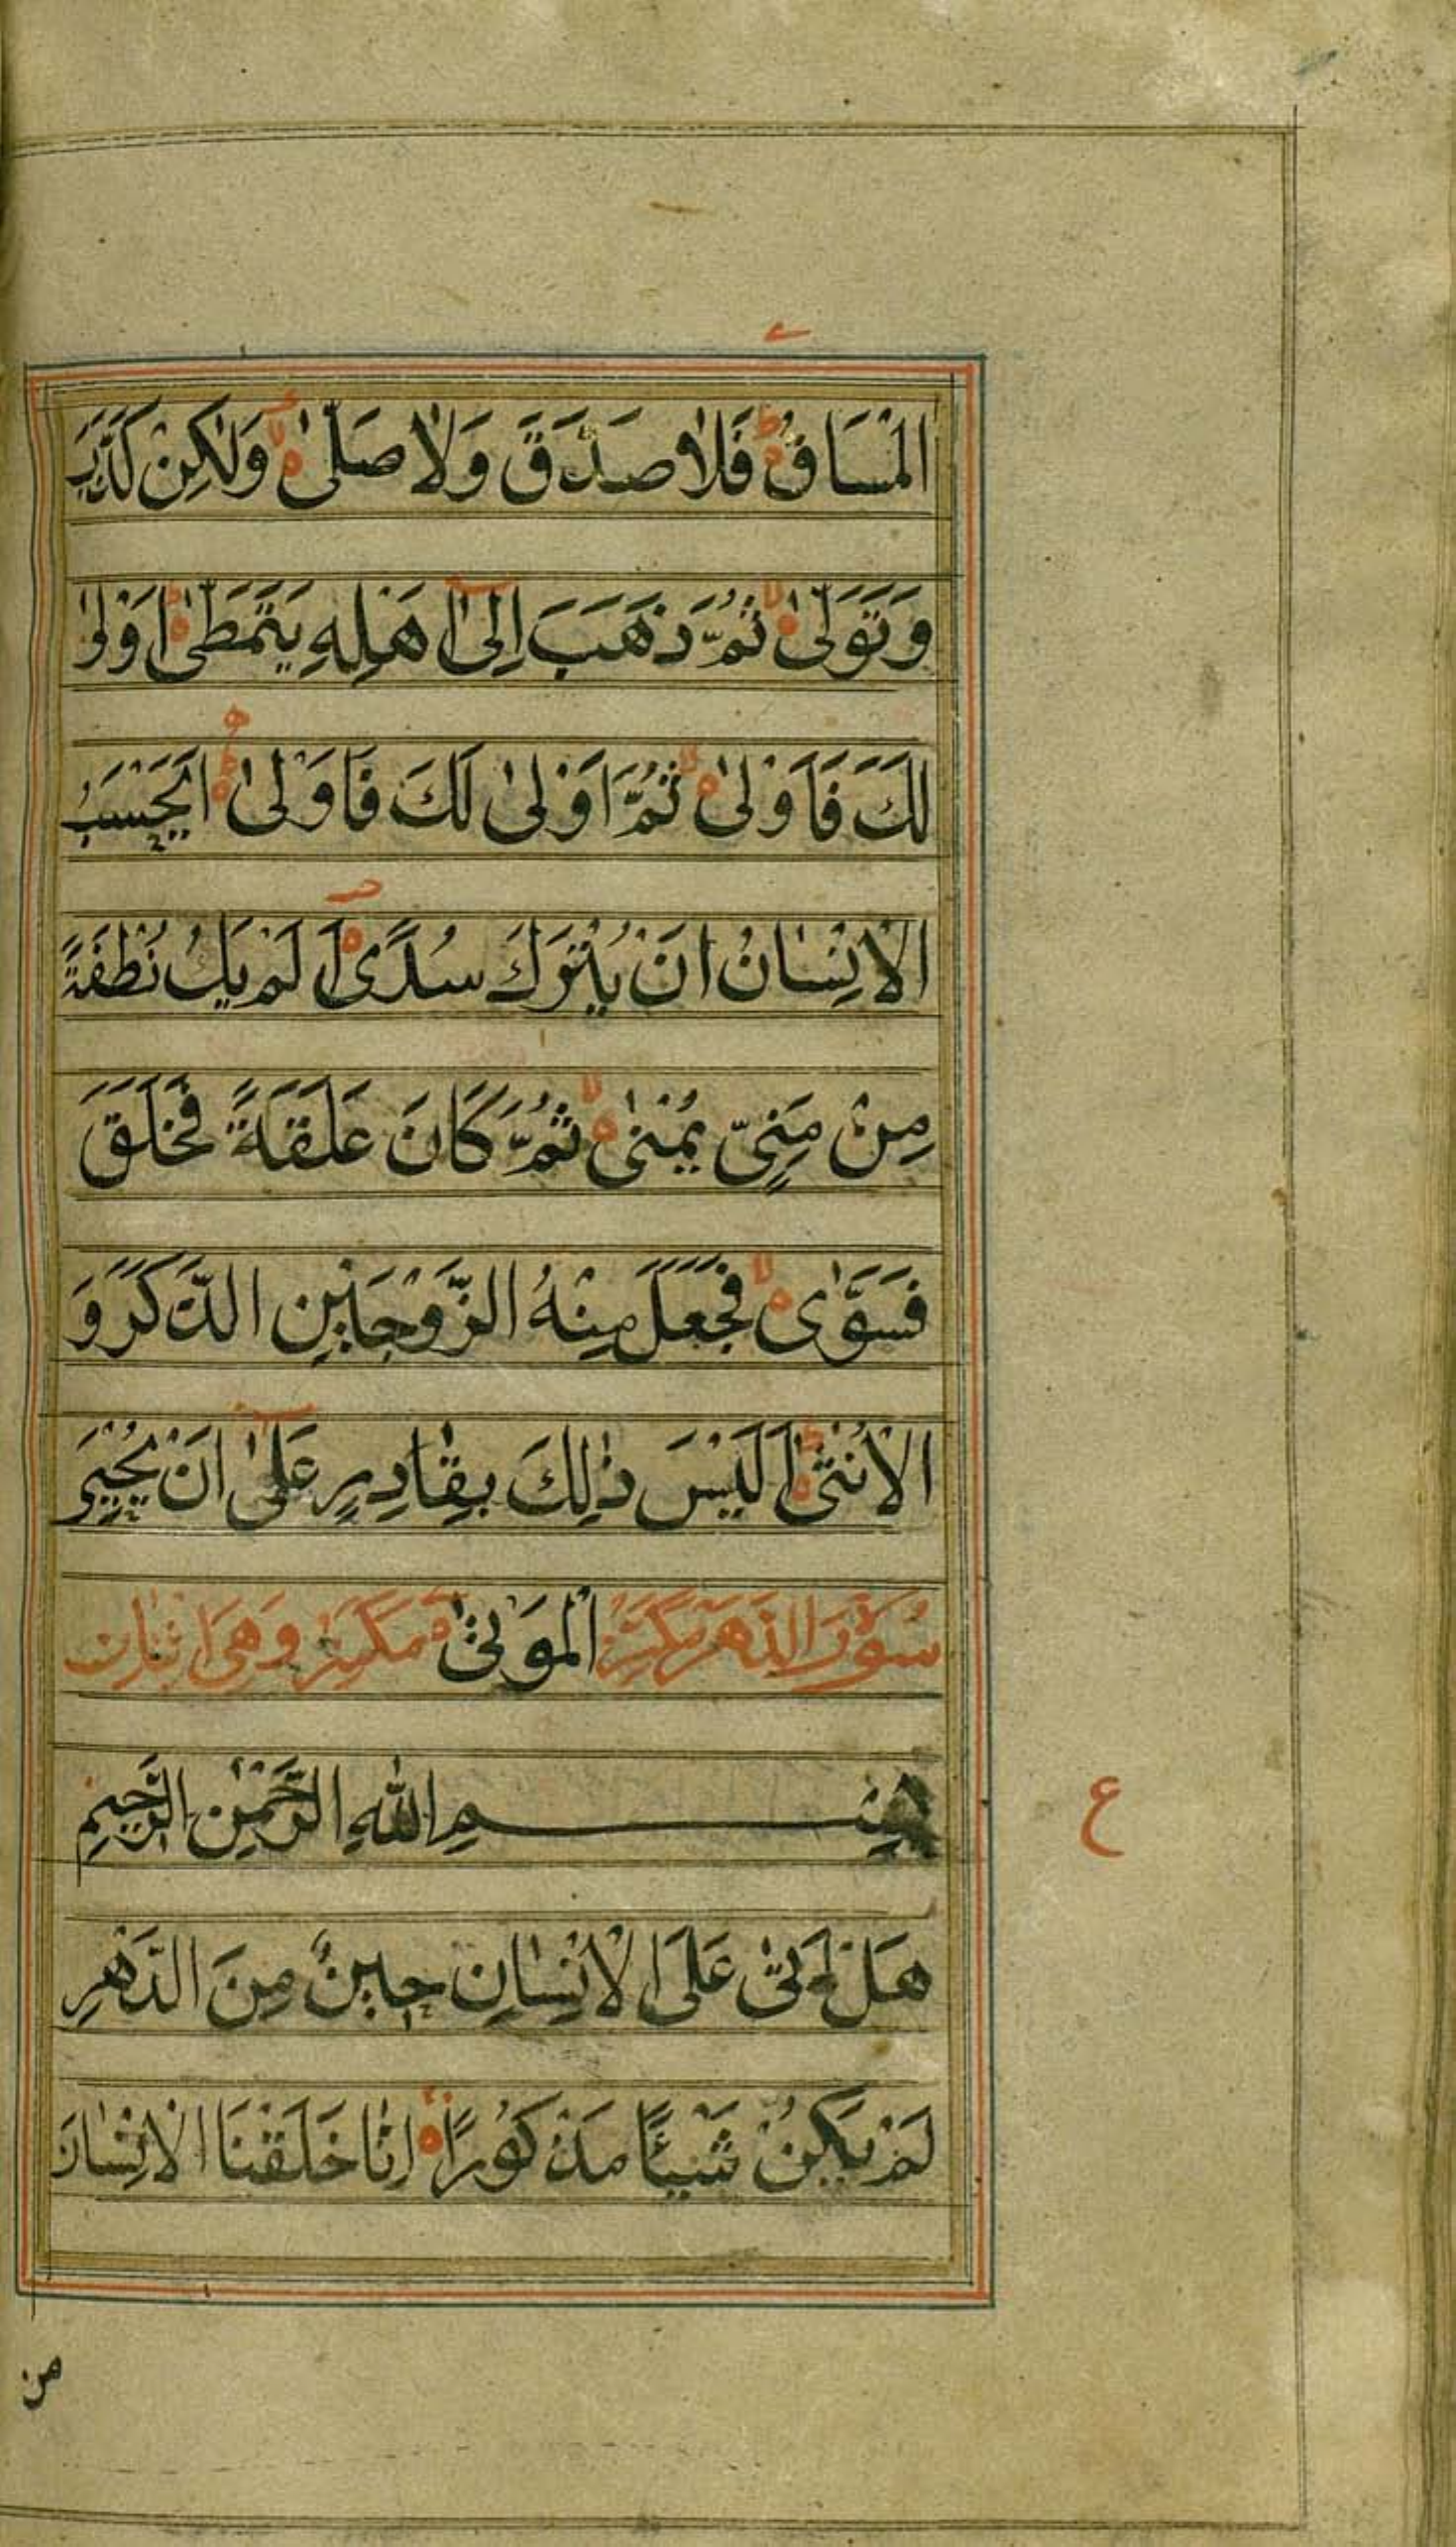 الْمَسَاقُ فَلَا صَدَّقَ وَلَا صَلّٰی وَلٰكِنْ كَذَّبَ
وَتَوَلّٰی ثُمَّ ذَهَبَ اِلٰۤی اَهْلِهِ يَتَمَطّٰی اَوْلٰی
لَكَ فَاَوْلٰی ثُمَّ اَوْلٰی لَكَ فَاَوْلٰی اَيَحْسَبُ
الْاِنْسَانُ اَنْ يُتْرَكَ سُدًی اَلَمْ يَكُ نُطْفَةً
مِنْ مَنِیٍّ يُمْنٰی ثُمَّ كَانَ عَلَقَةً فَخَلَقَ
فَسَوّٰی فَجَعَلَ مِنْهُ الزَّوْجَيْنِ الذَّكَرَ وَ
الْاُنْثٰی اَلَيْسَ ذٰلِكَ بِقَادِرٍ عَلٰۤی اَنْ يُحْيِیَ
سُوْرَةُ الدَّهْرِ مَكِّيَّةٌ الْمَوْتٰی وَهِیَ
بِسْمِ اللّٰهِ الرَّحْمٰنِ الرَّحِيْمِ
هَلْ اَتٰی عَلَی الْاِنْسَانِ حِيْنٌ مِنَ الدَّهْرِ
لَمْ يَكُنْ شَيْئًا مَذْكُوْرًا اِنَّا خَلَقْنَا الْاِنْسَانَ
ع
من